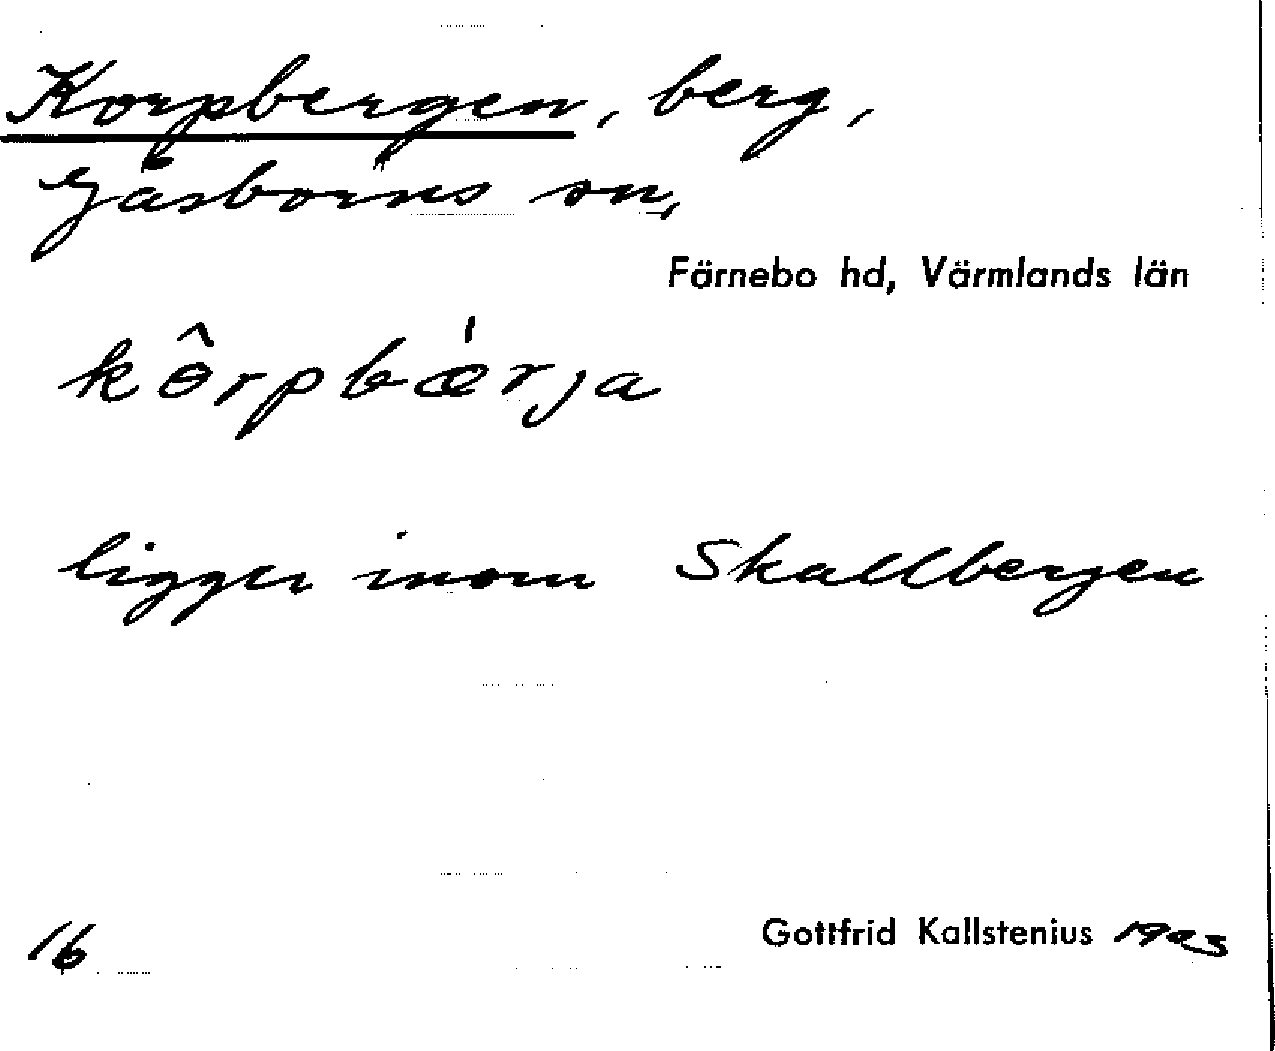 Korpbergen, berg,
Gåsborns sn,
Färnebo hd, Värmlands län
kôrpbǽrja
ligger inom Skallbergen
16
Gottfrid Kallstenius 1903